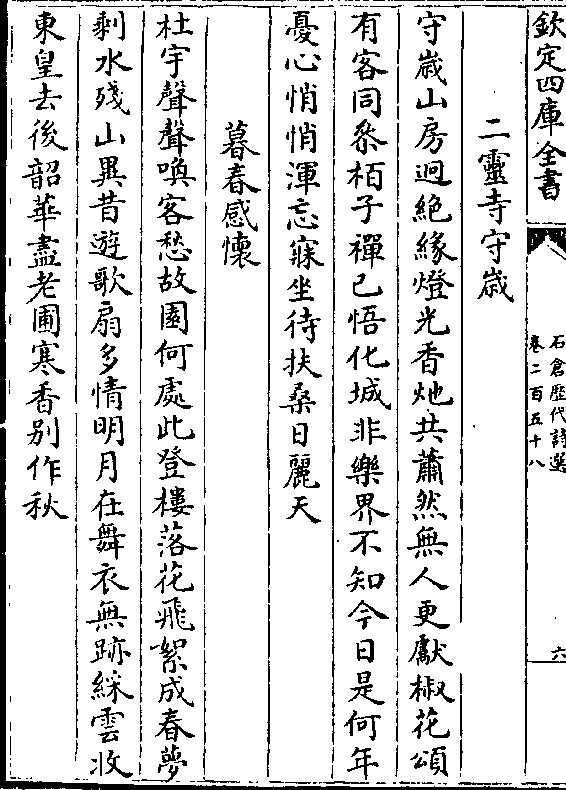 欽定四庫全書
石倉歴代詩選
卷二百五十八
六
二靈寺守歳
守歳山房迥絶緣燈光香灺共蕭然無人更獻椒花頌
有客同叅栢子禪已悟化城非樂界不知今日是何年
憂心悄悄渾忘寐坐待扶桑日麗天
暮春感懷
杜宇聲聲喚客愁故園何處此登樓落花飛絮成春夢
剩水殘山異昔遊歌扇多情明月在舞衣無跡綵雲收
東皇去後韶華盡老圃寒香别作秋